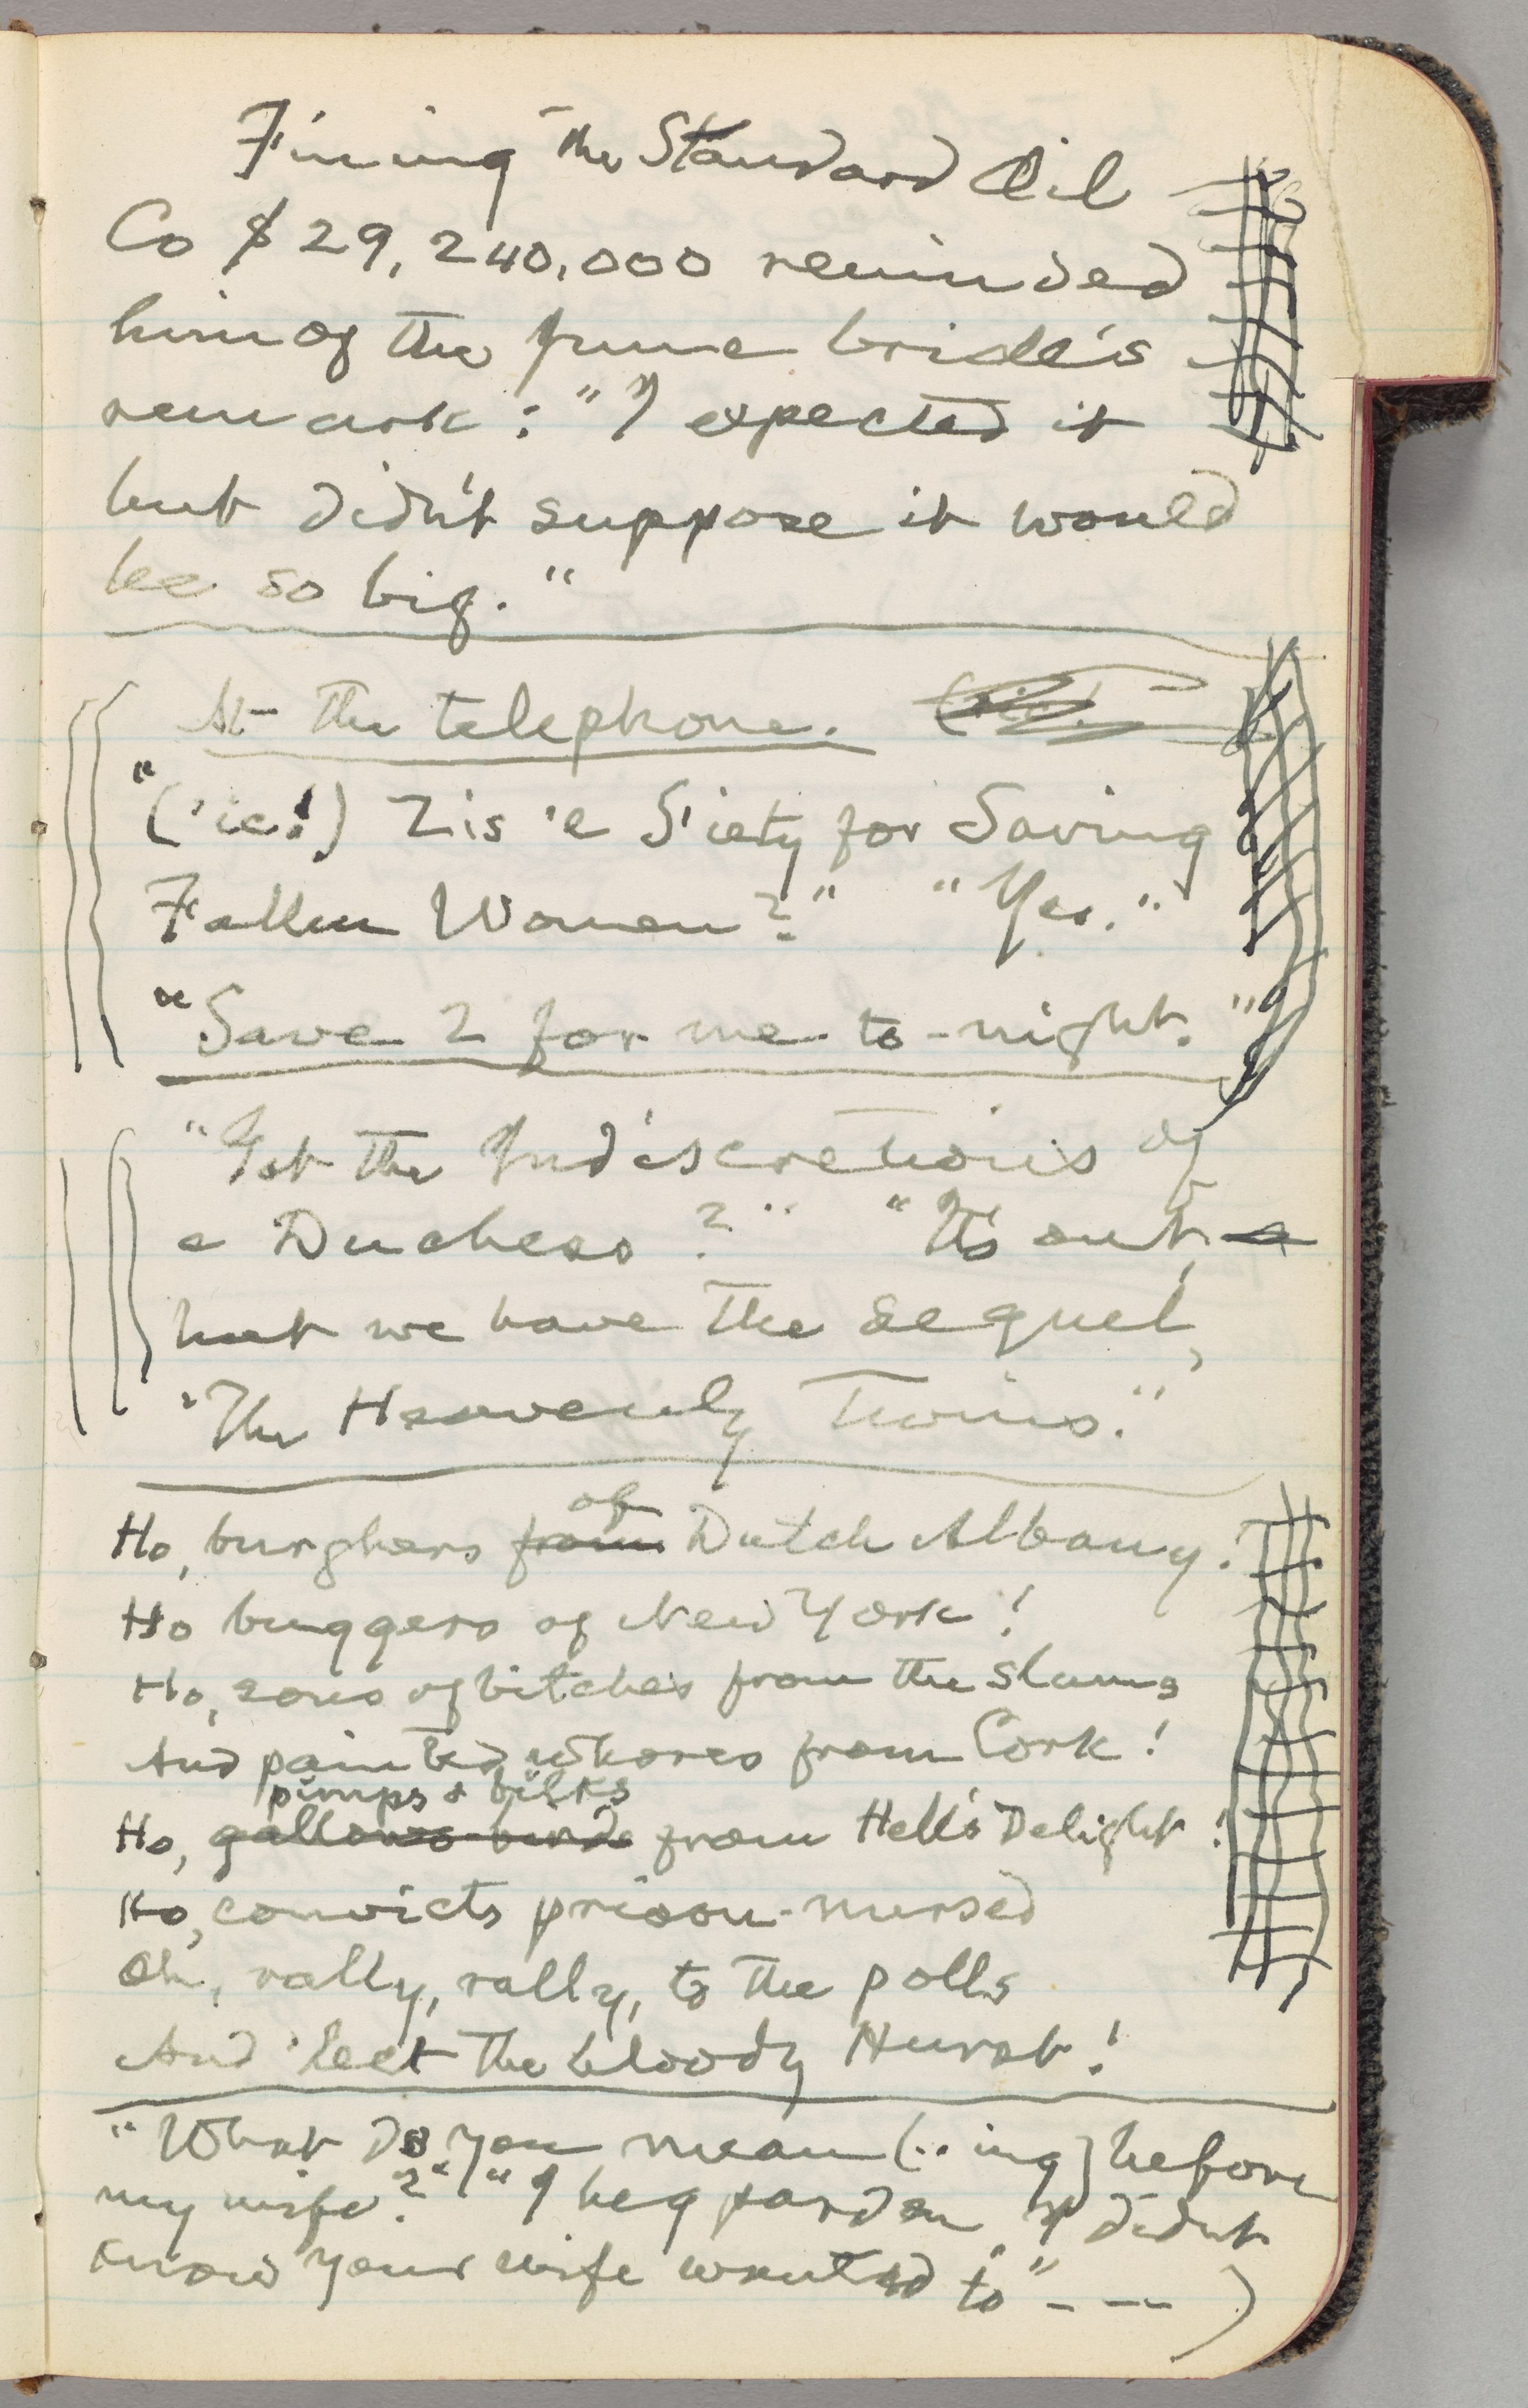 Fining the Standard Oil
Co $29,240,000 reminded
him of the June bride's
remark: "I expected it
but didn't suppose it would
be so big."
At the telephone.
"('ic!) Zis 'e S'iety for Saving
Fallen Women?" "Yes."
"Save 2 for me to-night."
"Got the Indiscretions of
a Duchess?" "It's out,
but we have the sequel,
'The Heavenly Twins."
Ho, burghers from of Dutch Albany!
Ho buggers of New York!
Ho, sons of bitches from the slums
And painted whores from Cork!
pimps & bilks
Ho, gallows-birds from Hell's Delight!
Ho, convicts prison-nursed
Oh, rally, rally, to the polls
And 'lect the bloody Hurst!
"What do you mean (..ing) before
my wife?" "I beg pardon, I didn't
know your wife wanted to" - — )